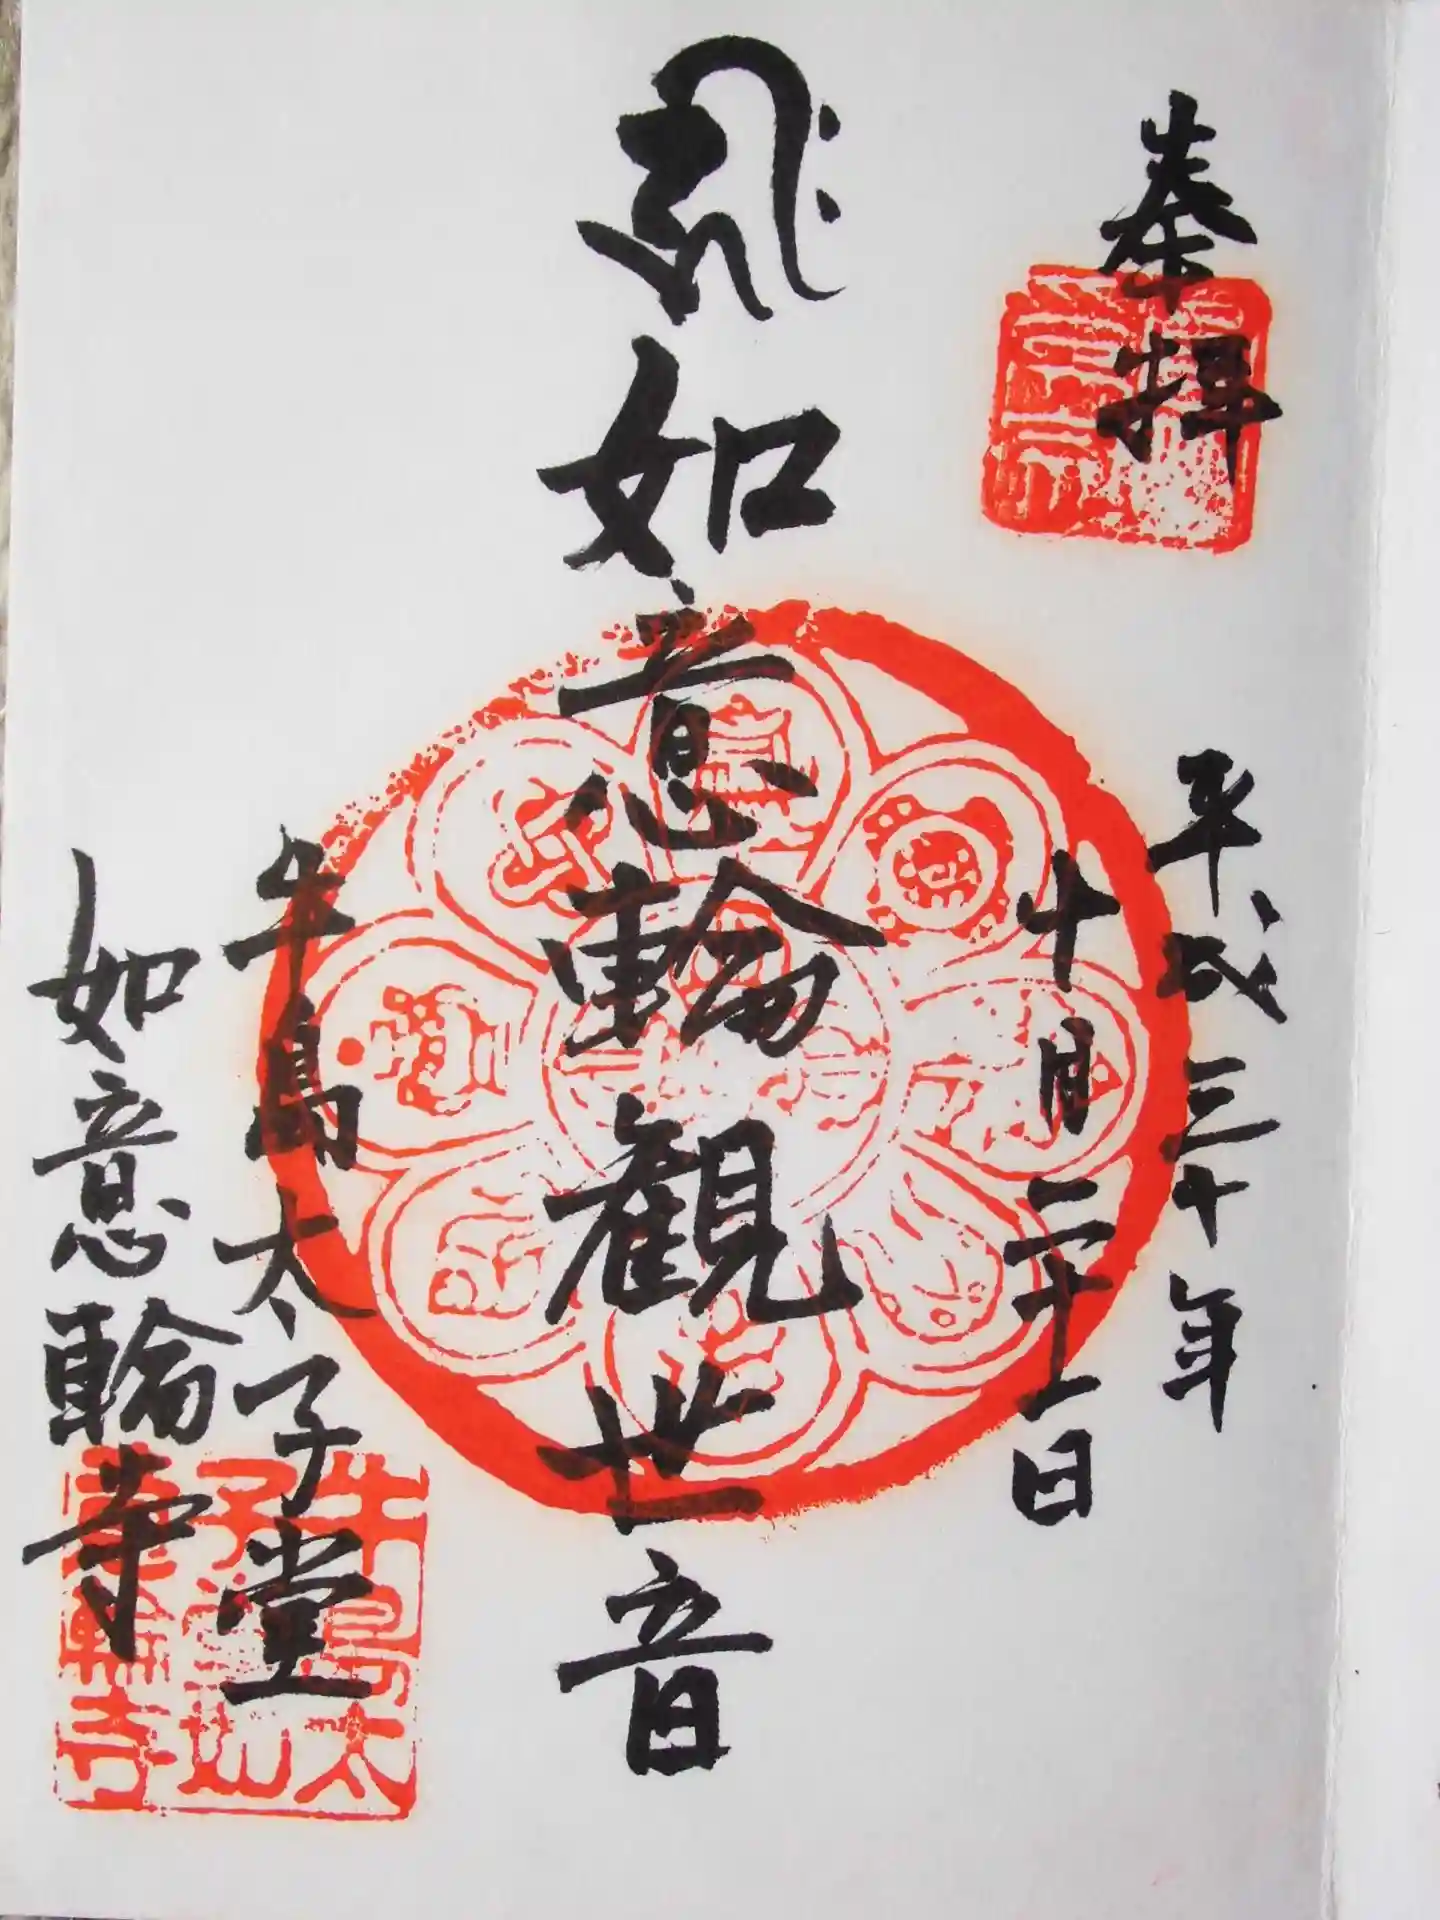 奉拝
平成三十年
十月二十一日
如意輪観世音
牛島太子堂
如意輪寺
牛島太
子堂如
意輪寺